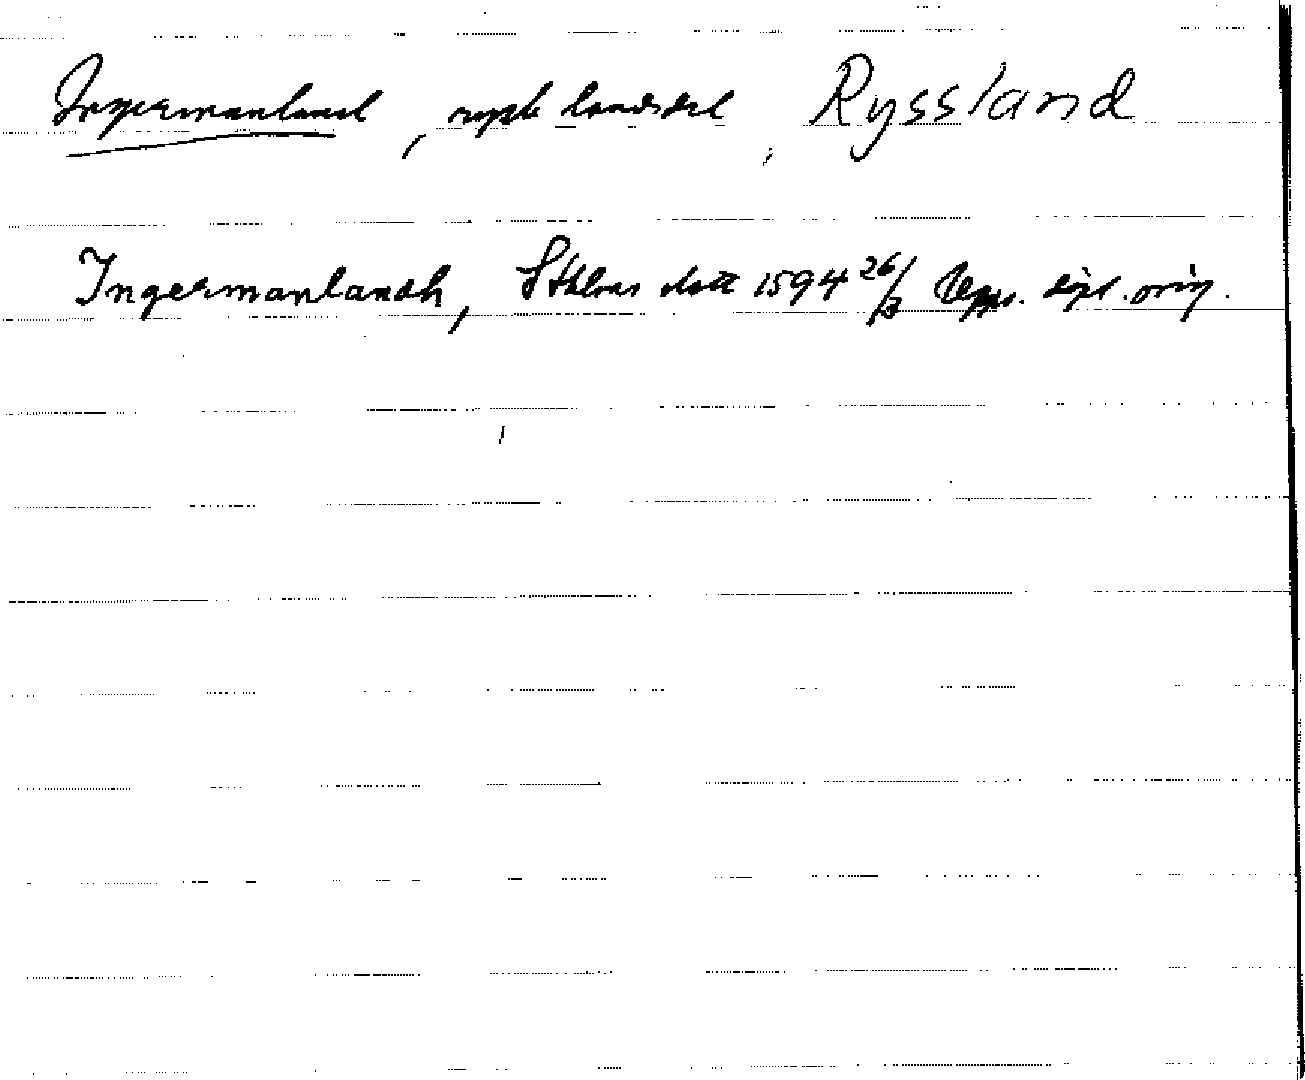 Ingermanland, rysk landsdel, Ryssland
Ingermanlandh, Sthlms slott 1594 26/3 dipl. orig.